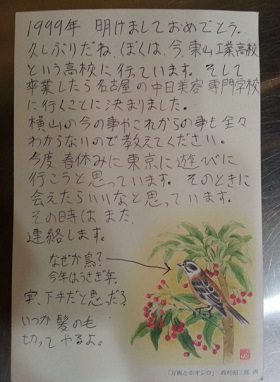 1999年 明けましておめでとう。
久しぶりだね、ぼくは、今、東山工業高校
という高校に行っています。そして
卒業したら名古屋の中日美容専門学校
に行くことに決まりました。
横山の今の事やこれからの事も全々
わからないので教えてください。
今度 春休みに東京に遊びに
行こうと思っています。そのときに
会えたらいいなと思っています。
その時はまた
連絡します。
なぜか鳥?
今年はうさぎ年。
字、下手だと思っだろ
いつか髪のも
切ってやるよ。
「万両とホオジロ」 西村昭二郎 画